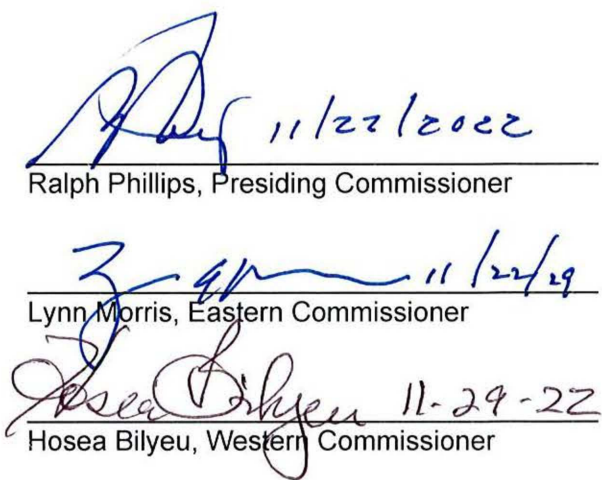 11/22/2022
Ralph Phillips, Presiding Commissioner
11/22/29
Lynn Morris, Eastern Commissioner
Hosea Bilyeu 11-29-22
Hosea Bilyeu, Western Commissioner